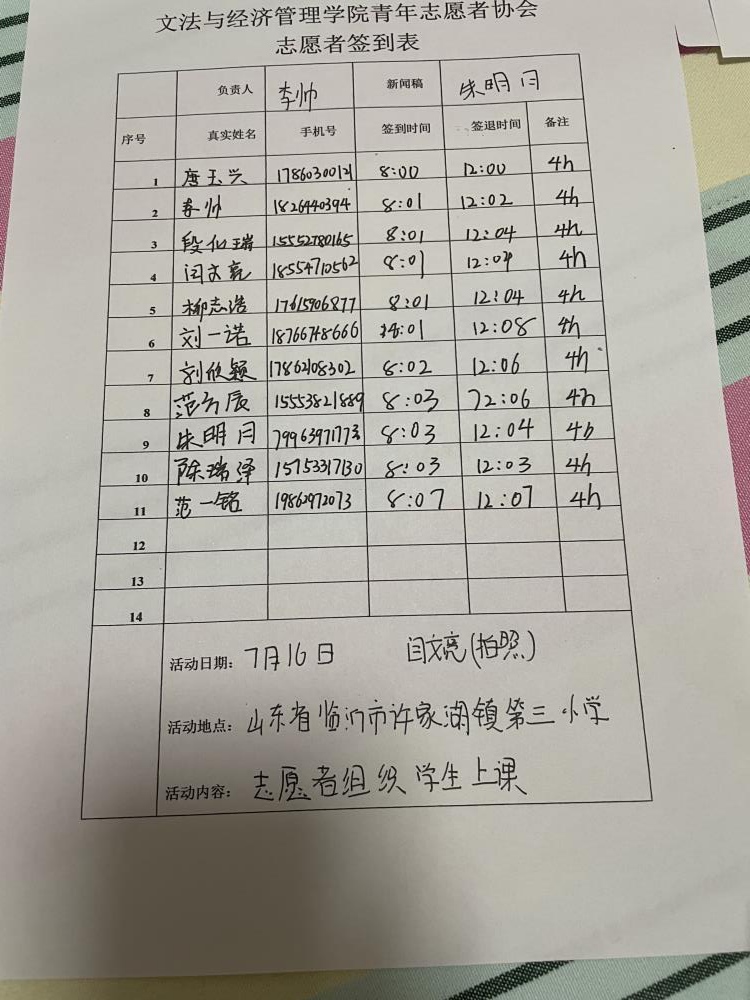 文法与经济管理学院青年志愿者协会
志愿者签到表
负责人 李帅 新闻稿 朱明月
序号 真实姓名 手机号 签到时间 签退时间 备注
1 唐玉兴 1786030012 8:00 12:00 4h
2 李帅 1826440394 8:01 12:02 4h
3 段化瑞 15552780165 8:01 12:04 4h
4 闫文亮 18554710562 8:01 12:04 4h
5 柳志浩 17615906877 8:01 12:04 4h
6 刘一诺 18766748666 8:01 12:08 4h
7 刘欣颖 17862108302 8:02 12:06 4h
8 范方辰 15553821889 8:03 12:06 4h
9 朱明月 79963971773 8:03 12:04 4h
10 陈瑞泽 15753317130 8:03 12:03 4h
11 范一铭 19862972073 8:07 12:07 4h
12
13
14
活动日期: 7月16日 闫文亮(拍照)
活动地点: 山东省临沂市许家湖镇第三小学
活动内容: 志愿者组织学生上课